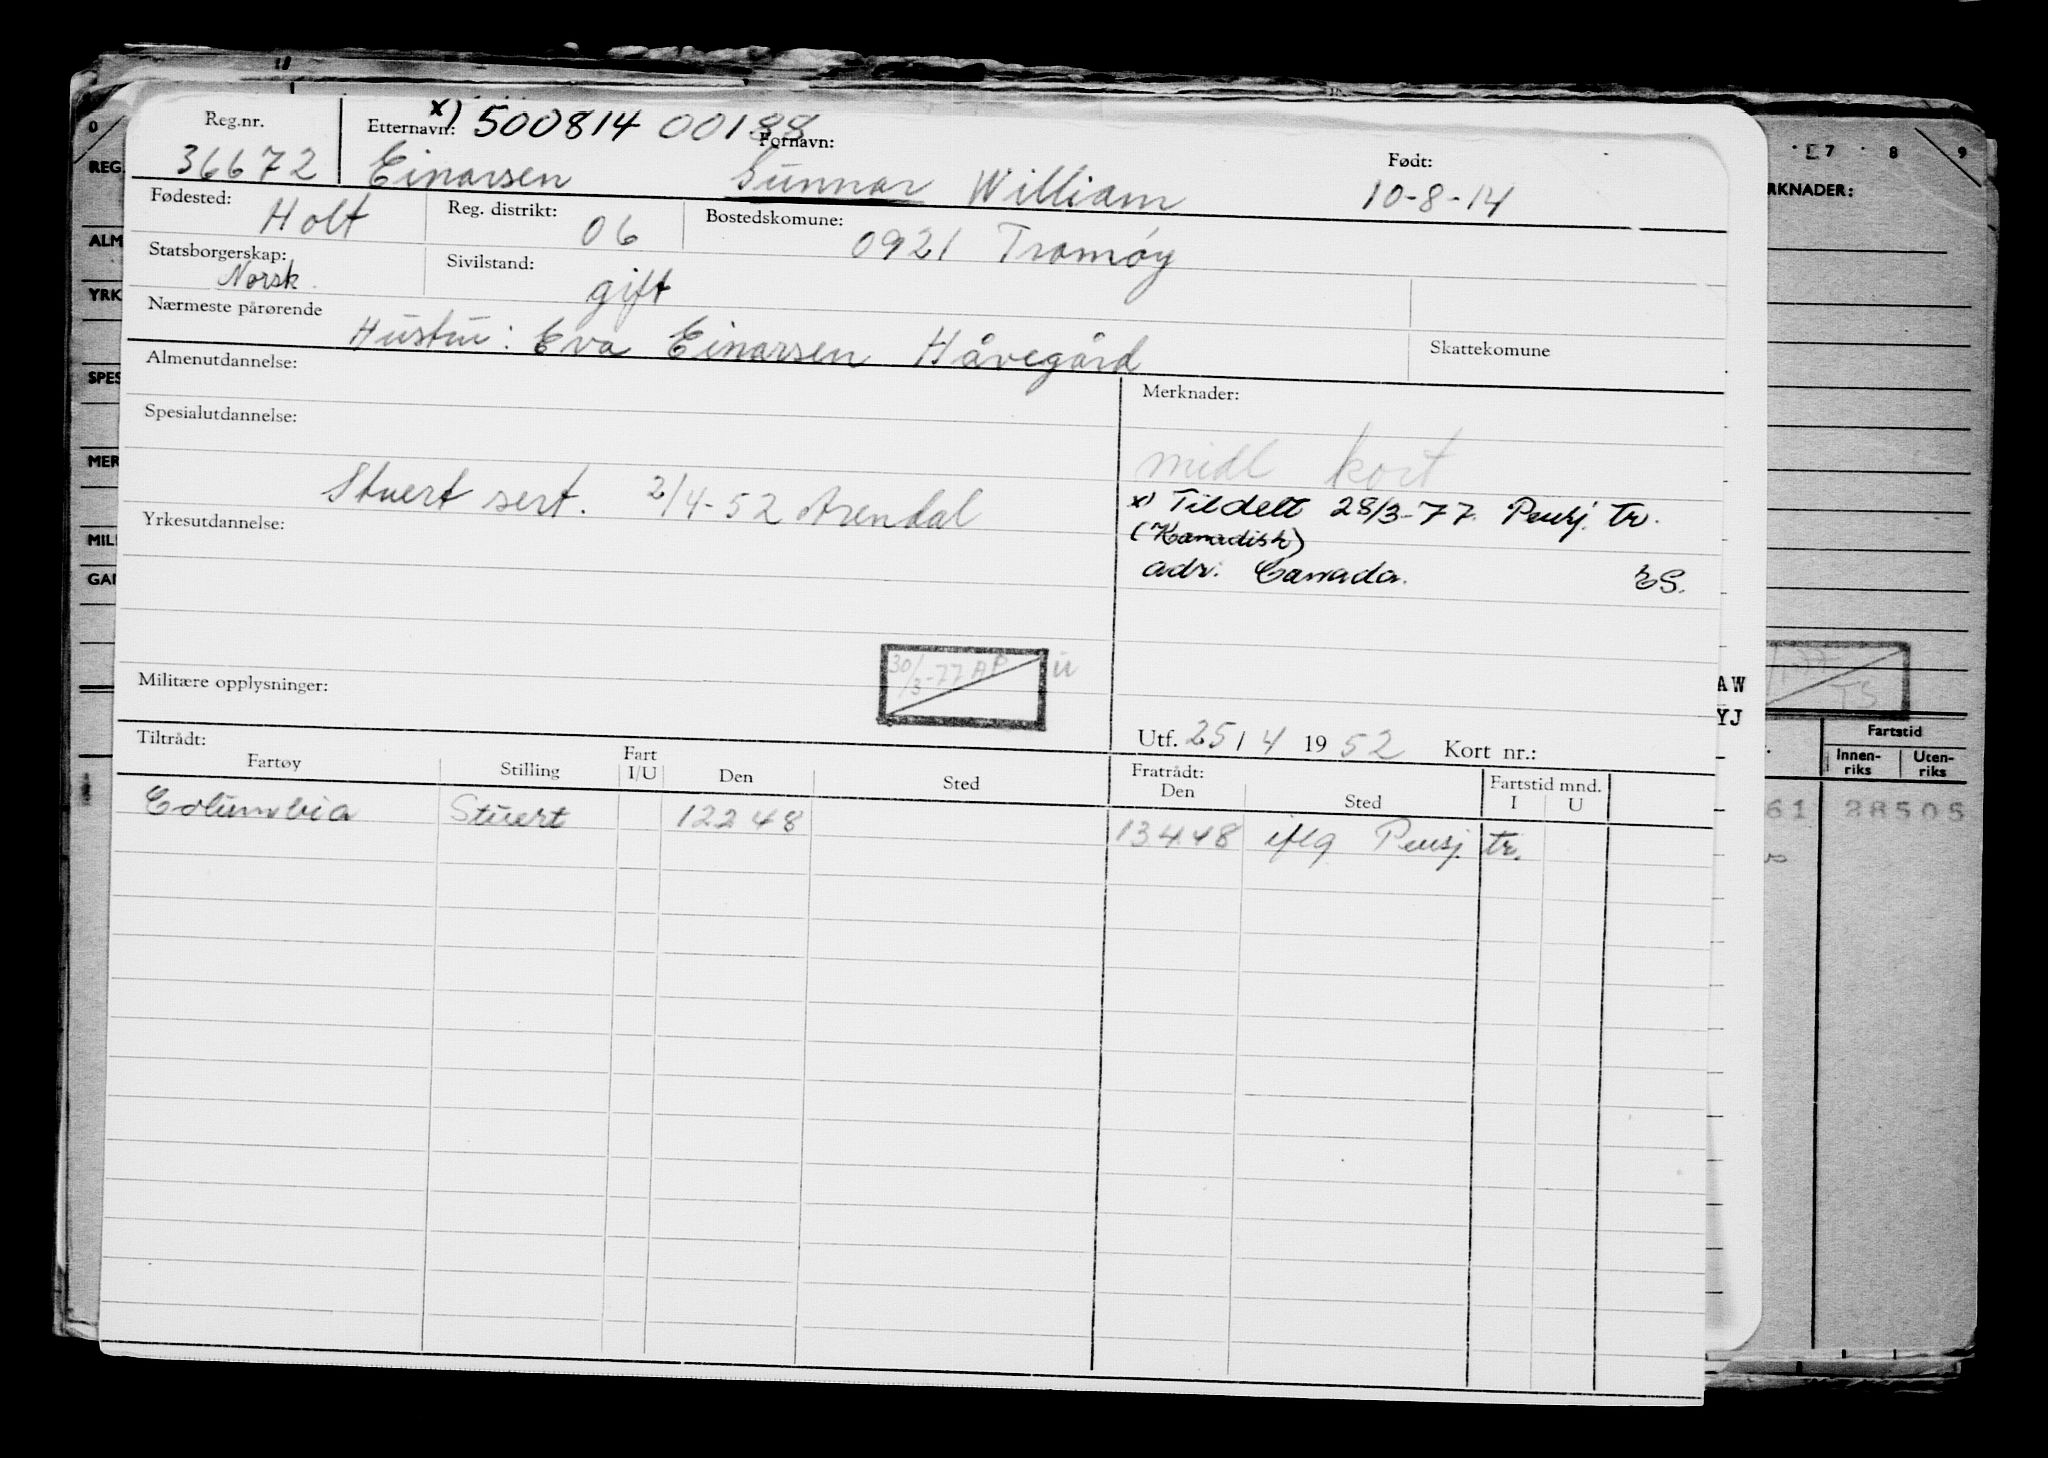 x) 500814 00188
Reg.nr. Etternavn: Fornavn: Født:
36672 Einarsen Gunnar William 10-8-14
Fødested: Holt Reg. distrikt: 06 Bostedskomune: 0921 Tromøy
Statsborgerskap: Norsk. Sivilstand: gift
Nærmeste pårørende
Hustru: Eva Einarsen Håvegård Skattekomune
Almenutdannelse: Merknader:
Spesialutdannelse:
midl kort
Stuert sert. 2/4-52 Arendal
x) Tildelt 28/3-77. Pensj. tr.
Yrkesutdannelse:
(Kanadisk)
adr. Canada. ES.
30/3-77 AP ü
Militære opplysninger:
Utf. 25/4 1952 Kort nr.:
Tiltrådt: Fratrådt:
Fartøy Stilling Fart I/U Den Sted Den Sted Fartstid mnd. I U
Columbia Stuert 12248 13448 iflg Pensj. tr.
0
REG.
ALM
YRK
SPES
MER
MIL
GAN
7 8 9
RKNADER:
AW
YJ
TS
Fartstid
Innen-riks Uten-riks
61 28505